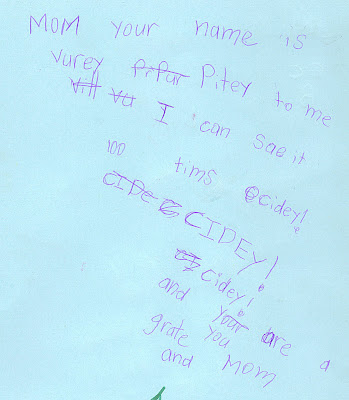 Mom your name is
vurey Pitey to me
I can sae it
100 tims cidey!
CIDEY!
cidey!
and your are a
grate you
and Mom